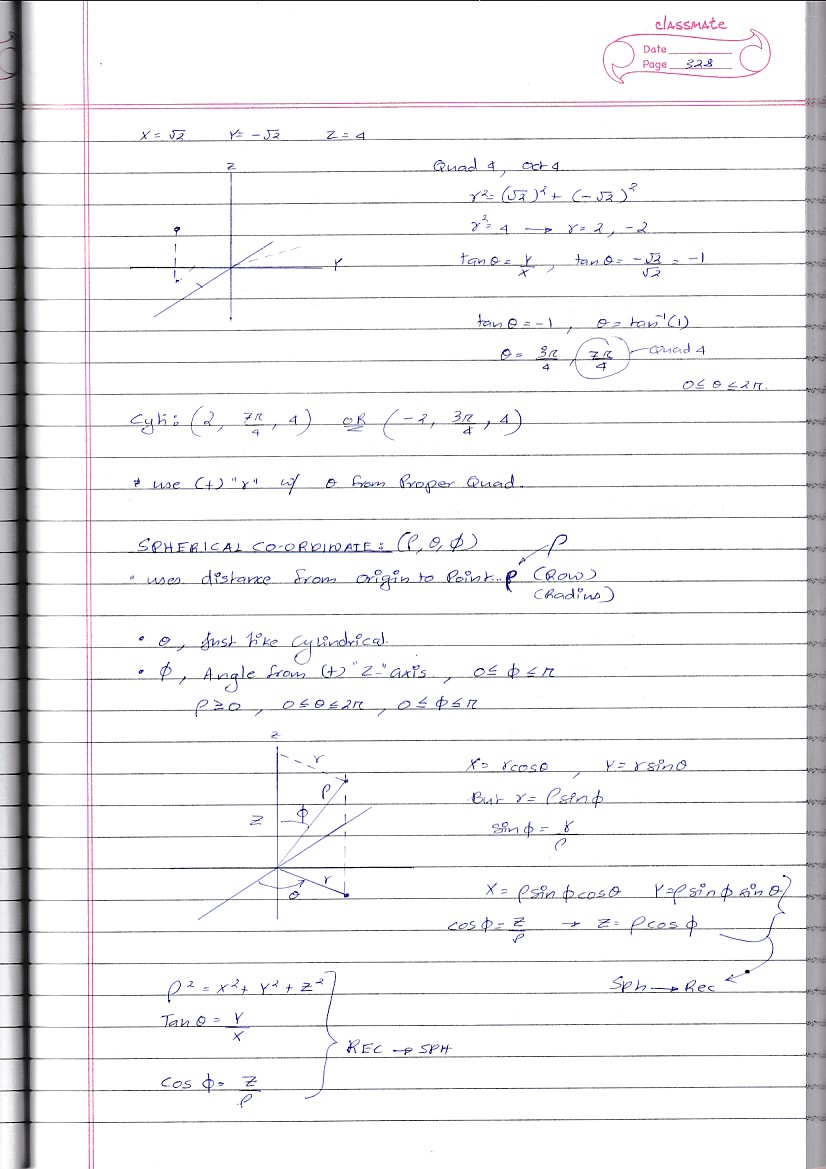 classmate
Date
Page 328
X = √2 Y = -√2 Z = 4
Quad 4, oct 4
r² = (√2)² + (-√2)²
r² = 4 → r = 2, -2
tan θ = Y/X, tan θ = -√2/√2 = -1
tan θ = -1, θ = tan⁻¹(1)
θ = 3π/4, 7π/4 Quad 4
0 ≤ θ ≤ 2π.
Z
Y
Cyli: (2, 7π/4, 4) OR (-2, 3π/4, 4)
* use (+) "r" w/ θ from Proper Quad.
SPHERICAL CO-ORDIDATE: (ρ, θ, φ) ρ
• uses distance from origin to Point.. ρ (Row)
(Radius)
• θ, Just like Cylindrical.
• φ, Angle from (+) "Z-" axis, 0 ≤ φ ≤ π
ρ ≥ 0, 0 ≤ θ ≤ 2π, 0 ≤ φ ≤ π
Z
r
ρ
φ
Z
r
θ
X = r cosθ, Y = r sinθ
But r = ρ sin φ
sin φ = r/ρ
X = ρ sin φ cos θ Y = ρ sin φ sin θ
cos φ = Z/ρ → Z = ρ cos φ
Sph → Rec
ρ² = X² + Y² + Z²
Tan θ = Y/X
REC → SPH
Cos φ = Z/ρ